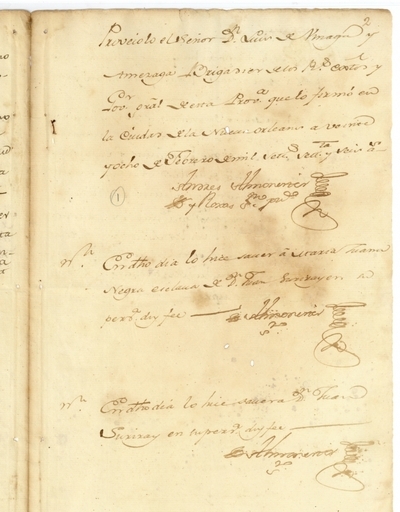 2
Proveiolo el Señor Dn Luis de Unzaga y
Amezaga Brigadier de los Rs Extos y
Gor Gral de esta Prova que lo firmó en
la Ciudad de la Nueva Orleans a
ocho de Febrero de mil, setcs, settta y seis as
Andres Almonester
y Roxas
1
En dho dia lo hice saver á Maria Juana
Negra esclava de Dn Juan Suriray en su
persa doy fee
Almonester
En dho dia lo hice saver a Dn Juan
Suriray en su persa doy fee
Almonester